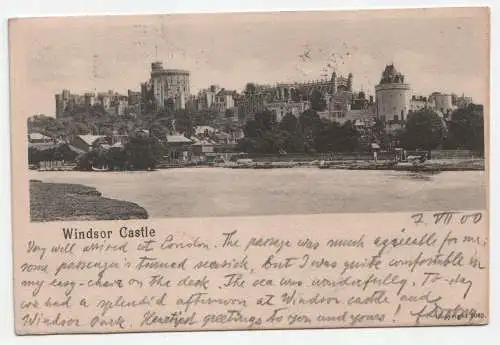 Windsor Castle
7. VII 00
Very well arrived at London. The passage was much agreable for me;
some passengers turned seasick, but I was quite comfortable in
my easy-chair on the desk. The sea was wonderfully. To-day
we had a splendid afternoon at Windsor castle and
Windsor Park. Heartiest greetings to you and yours!
Copyright